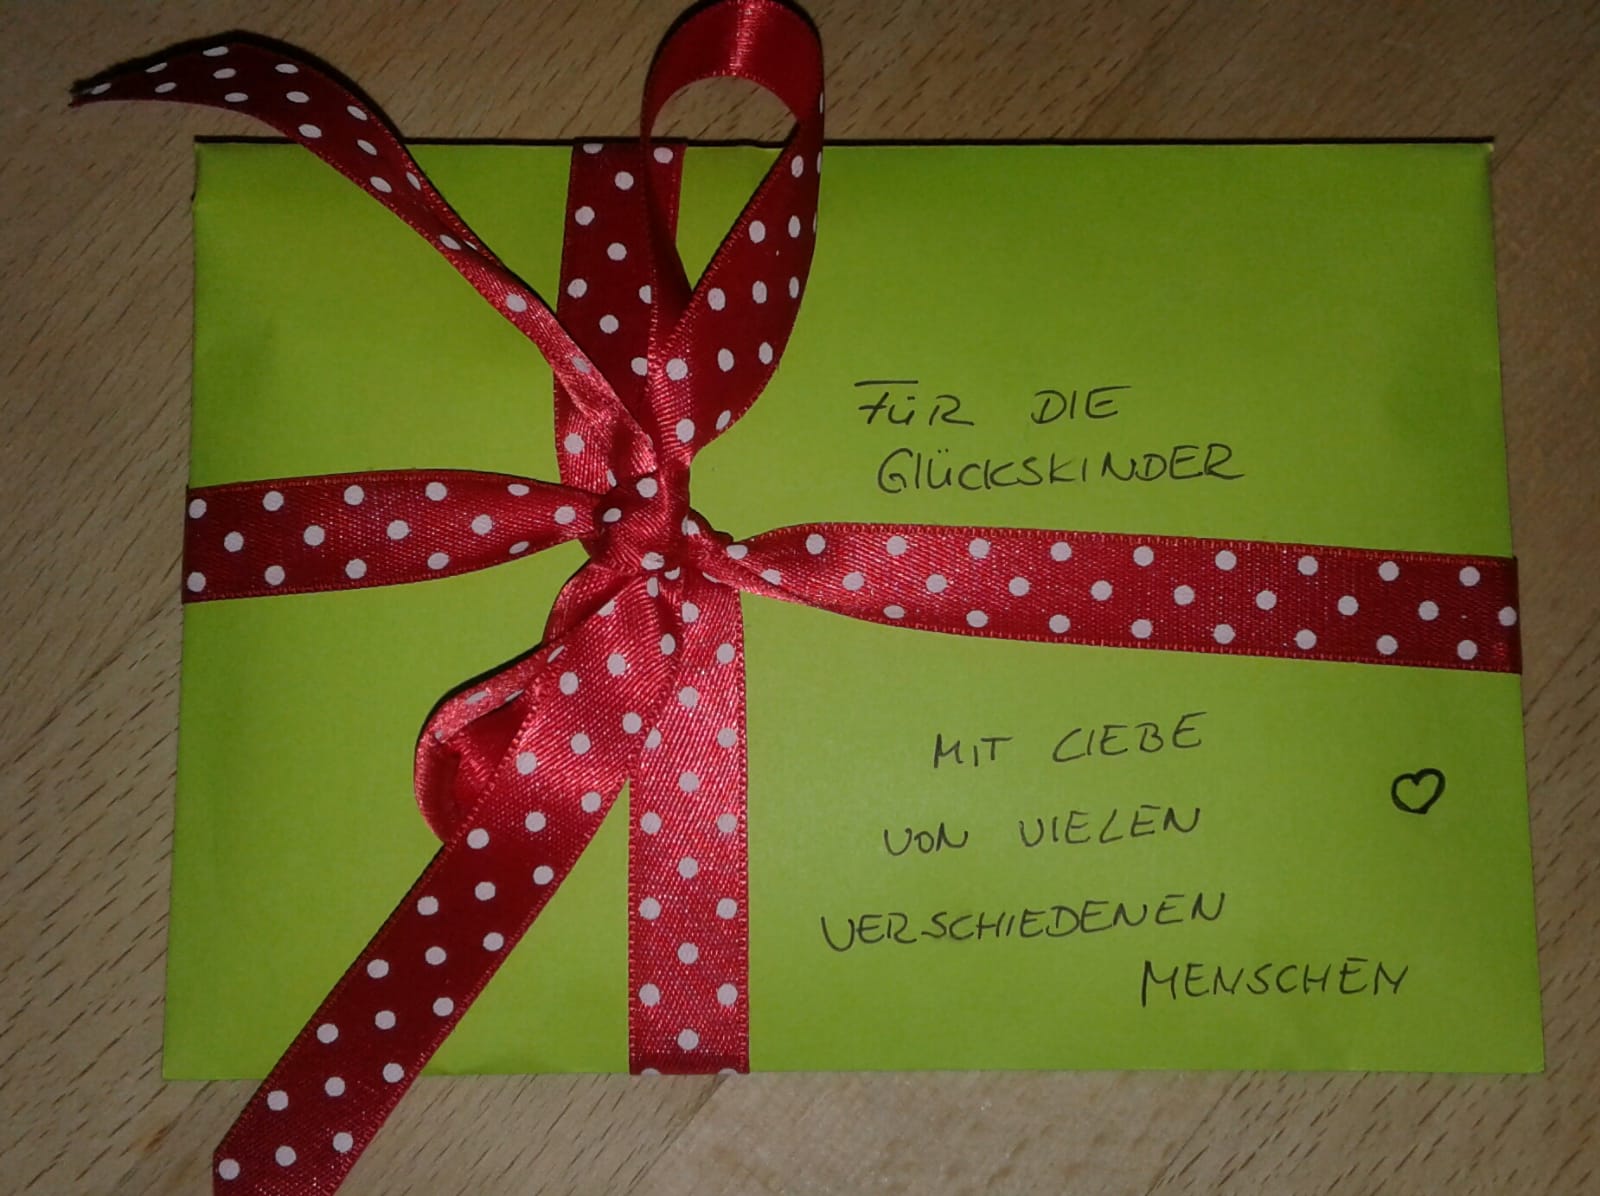 FÜR DIE
GLÜCKSKINDER
MIT LIEBE
VON VIELEN
VERSCHIEDENEN
MENSCHEN